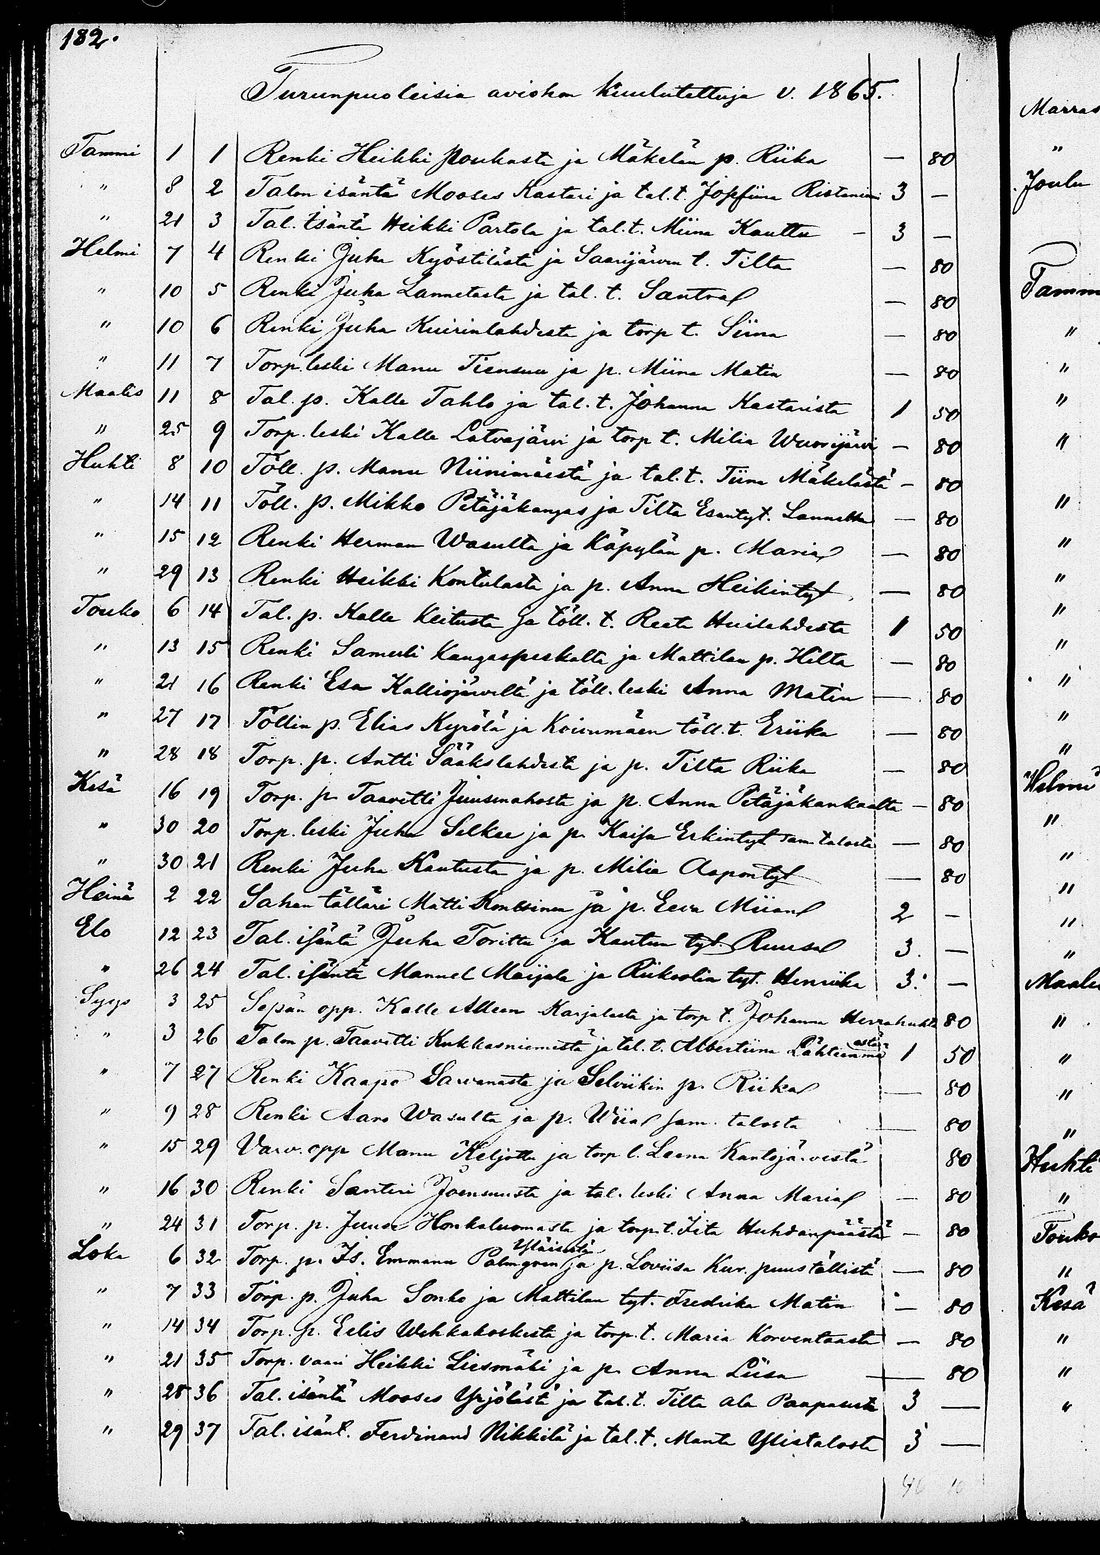 182.
Turunpuoleisia avioon kuulutettuja v. 1865.
Tammi 1 1 Renki Heikki Poukasta ja Mäkelän p. Riika — 80
" 8 2 Talon isäntä Mooses Kastari ja tal.t. Josefiina 3 —
" 21 3 Tal. isäntä Heikki Partola ja tal.t. Miina Kauttu — 3 —
Helmi 7 4 Renki Juha Kyöstilästä ja Saarijärven t. Tilta — 80
" 10 5 Renki Juha Lannetasta ja tal. t. Santra — 80
" 10 6 Renki Juha Kuirinlahdesta ja torp t. Siina — 80
" 11 7 Torp. leski Manu Tiensuu ja p. Miina Matin — 80
Maalis 11 8 Tal. p. Kalle Tahlo ja tal. t. Johanna Kastarista 1 50
" 25 9 Torp. leski Kalle Latvajärvi ja torp t. Milia Wuorijärvi — 80
Huhti 8 10 Töll. p. Manu Niinimäistä ja tal.t. Tiina Mäkelästä — 80
" 14 11 Töll. p. Mikko Petäjäkangas ja Tilta Esantyt. — 80
" 15 12 Renki Herman Wasulta ja Käpylän p. Maria — 80
" 29 13 Renki Heikki Kontulasta ja p. Anna Heikintyt. — 80
Touko 6 14 Tal. p. Kalle Keitusta ja töll. t. Reeta Huilahdesta 1 50
" 13 15 Renki Samuli Kangaspeskalta ja Mattilan p. Hilta — 80
" 21 16 Renki Esa Kalliojärveltä ja töll. leski Anna Matin — 80
" 27 17 Töllin p. Elias Kyrölä ja Koivumäen töll.t. Eriika — 80
" 28 18 Torp. p. Antti Sääkslahdesta ja p. Tilta Riika — 80
Kesä 16 19 Torp. p. Taavitti Juusmahosta ja p. Anna Petäjäkankaalta — 80
" 30 20 Torp. leski Juha Selkee ja p. Kaisa Erkintyt sam. talosta — 80
" 30 21 Renki Juha Kautusta ja p. Milia Aapontyt — 80
Heinä 2 22 Sahan tällari Matti ja p. Eeva Miina 2 —
Elo 12 23 Tal. isäntä Juha Toritta ja Kautun tyt. Ruusa 3 —
" 26 24 Tal. isäntä Manuel Maijala ja Riikoolin tyt. Henriika 3 —
Syys 3 25 Sepän opp. Kalle Karjalasta ja torp t. Johanna Herrahuhta 80
" 3 26 Talon p. Taavitti Kukkasniemestä ja tal. t. Albertiina 1 50
" 7 27 Renki Kaapo Sarvanasta ja Selviikin p. Riika — 80
" 9 28 Renki Aaro Wasulta ja p. Wiia sam. talosta — 80
" 15 29 Varv. opp Manu Keljotta ja torp t. Leena Kantojärvestä 80
" 16 30 Renki Santeri Joensuusta ja tal. leski Anna Maria — 80
" 24 31 Torp. p. Juuse Honkaluomasta ja torp t. Iita Huhdanpäästä — 80
Loka 6 32 Torp. p. Is. Emmanu Palmgren ja p. Loviisa Kur. puuställistä — 80
" 7 33 Torp. p. Juha Sonko ja Mattilan tyt. Fredrika Matin — 80
" 14 34 Torp. p. Eelis Wehkakoskesta ja torp. t. Maria Korventaasta — 80
" 21 35 Torp. vaari Heikki Liesmäki ja p. Anna Liisa — 80
" 28 36 Tal. isäntä Mooses Yrjölästä ja tal.t. Tilta ala Paapasesta 3 —
" 29 37 Tal. isänt. Ferdinand Nikkilä ja tal. t. Manta Ylistalosta 3 —
46 10
Marras
"
Joulu
Tamm
"
"
"
"
"
"
"
"
"
"
"
"
Helmi
"
"
"
"
"
Maalis
"
"
"
"
Huhti
"
Touko
"
Kesä
"
"
"